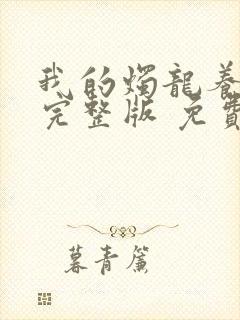 我的燭龍養
完整版 免費
暮青簾